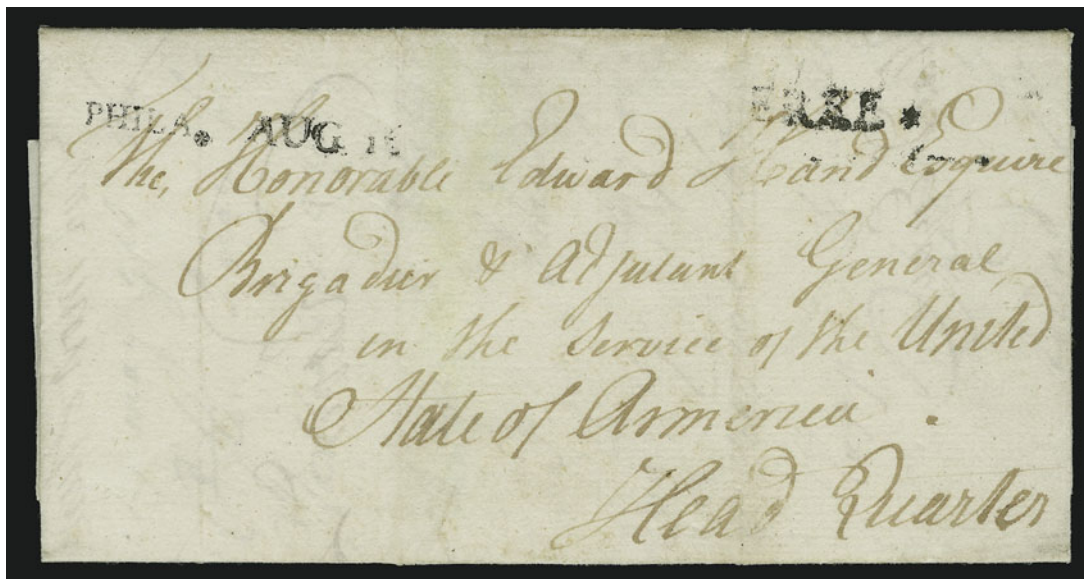 PHILA * AUG 1
FREE *
The Honorable Edward Hand Esquire
Brigadier & Adjutant General
in the Service of the United
State of Armerica .
Head Quarter